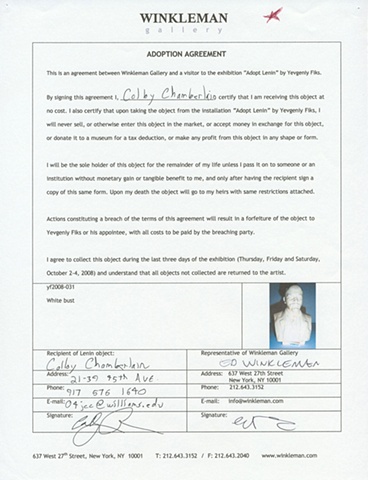 WINKLEMAN
gallery
ADOPTION AGREEMENT
This is an agreement between Winkleman Gallery and a visitor to the exhibition "Adopt Lenin" by Yevgeniy Fiks.
By signing this agreement I, Colby Chamberlain certify that I am receiving this object at
no cost. I also certify that upon taking the object from the installation "Adopt Lenin" by Yevgeniy Fiks, I
will never sell, or otherwise enter this object in the market, or accept money in exchange for this object,
or donate it to a museum for a tax deduction, or make any profit from this object in any shape or form.
I will be the sole holder of this object for the remainder of my life unless I pass it on to someone or an
institution without monetary gain or tangible benefit to me, and only after having the recipient sign a
copy of this same form. Upon my death the object will go to my heirs with same restrictions attached.
Actions constituting a breach of the terms of this agreement will result in a forfeiture of the object to
Yevgeniy Fiks or his appointee, with all costs to be paid by the breaching party.
I agree to collect this object during the last three days of the exhibition (Thursday, Friday and Saturday,
October 2-4, 2008) and understand that all objects not collected are returned to the artist.
yf2008-031
White bust
Recipient of Lenin object:
Colby Chamberlain
Address: 21-39 45th AVE
Phone: 917 576 1640
E-mail: 04jcc@williams.edu
Signature:
Representative of Winkleman Gallery
ED WINKLEMAN
Address: 637 West 27th Street
New York, NY 10001
Phone: 212.643.3152
E-mail: info@winkleman.com
Signature:
637 West 27th Street, New York, NY 10001 T: 212.643.3152 / F: 212.643.2040 www.winkleman.com